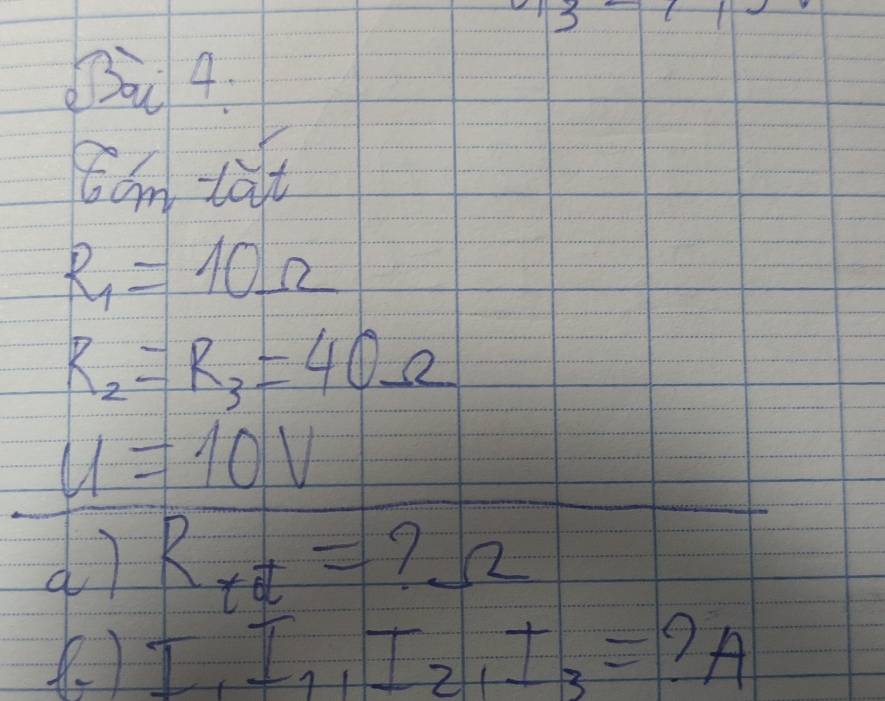 Bài 4:
Tóm tắt
R₁ = 10Ω
R₂ = R₃ = 40Ω
U = 10V
a) R_tđ = ? Ω
b) I, I₁, I₂, I₃ = ? A